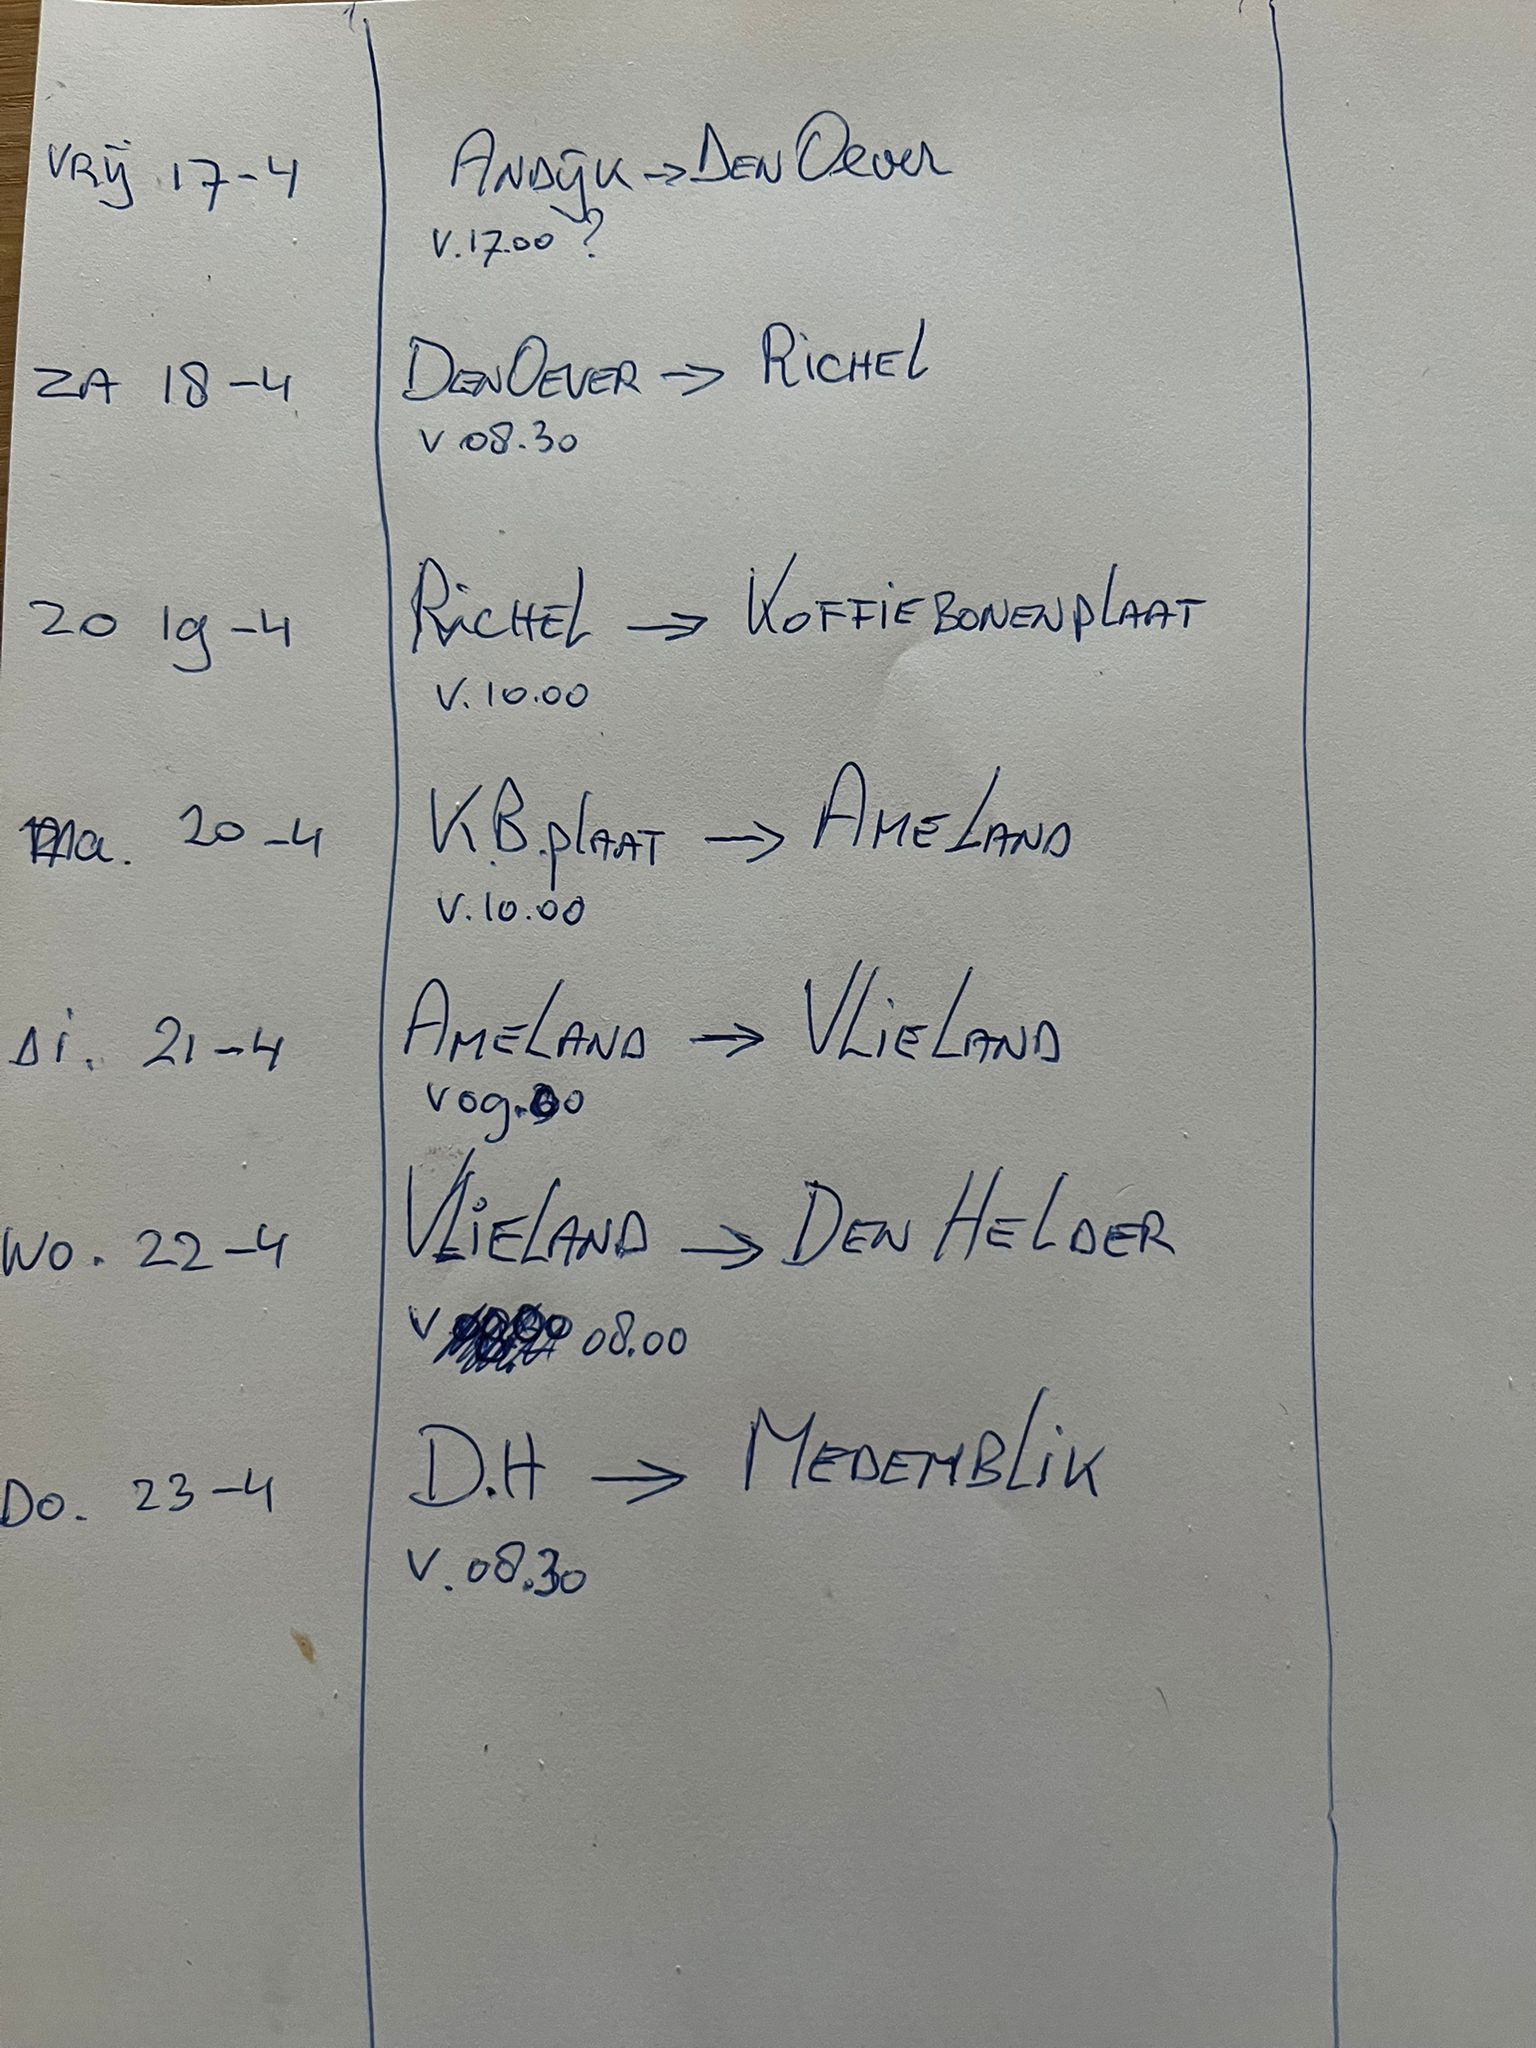 Vrij 17-4 Andijk → Den Oever
v.17.00 ?
ZA 18-4 Den Oever → Richel
v 08.30
ZO 19-4 Richel → Koffiebonenplaat
v.10.00
Ma. 20-4 K.B.plaat → Ameland
v.10.00
Di. 21-4 Ameland → Vlieland
v 09.00
Wo. 22-4 Vlieland → Den Helder
v 08.00
Do. 23-4 D.H → Medemblik
v.08.30